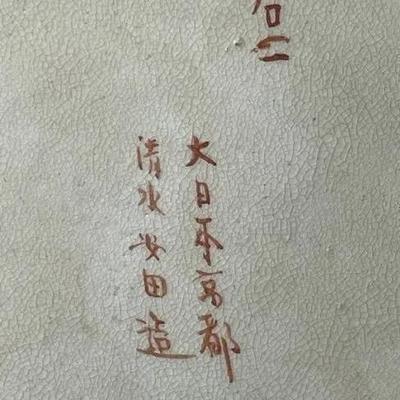 大日本京都
清水安田造